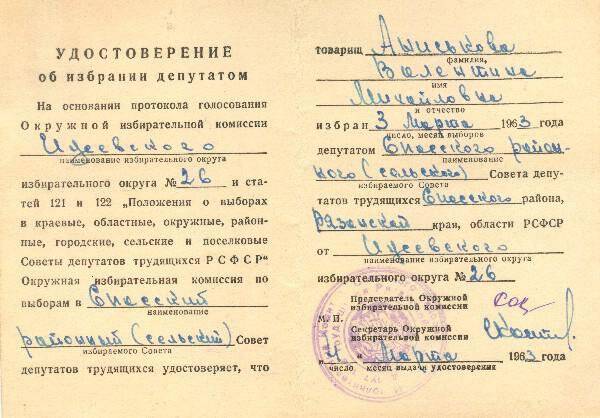 УДОСТОВЕРЕНИЕ
об избрании депутатом
На основании протокола голосования
Окружной избирательной комиссии
Ижевского
наименование избирательного округа
избирательного округа № 26 и ста-
тей 121 и 122 „Положения о выборах
в краевые, областные, окружные, район-
ные, городские, сельские и поселковые
Советы депутатов трудящихся РСФСР“
Окружная избирательная комиссия по
выборам в Спасский
наименование
районный (сельский) Совет
избираемого Совета
депутатов трудящихся удостоверяет, что
товарищ Аниськова
фамилия,
Валентина
имя
Михайловна
и отчество
избран 3 Марта 1963 года
число, месяц выборов
депутатом Спасского район-
наименование
ного (сельского) Совета депу-
избираемого Совета
татов трудящихся Спасского района,
Рязанской края, области РСФСР
от Ижевского
наименование избирательного округа
избирательного округа № 26
Председатель Окружной
избирательной комиссии
М. П.
Секретарь Окружной
избирательной комиссии
„4“ Марта 1963 года
число месяц выдачи удостоверения